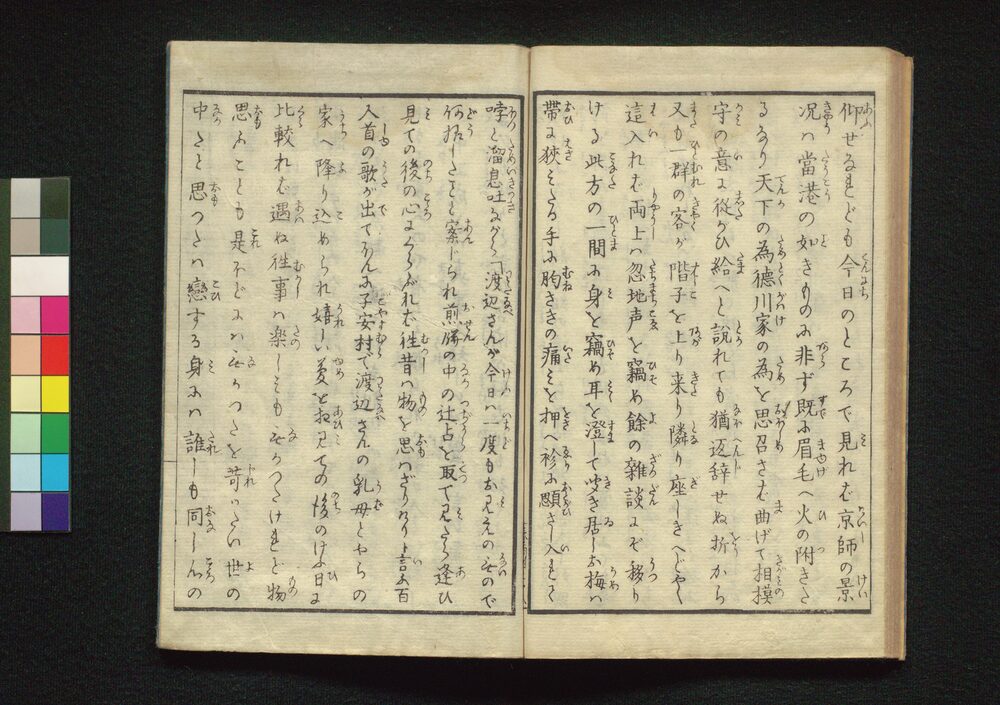 仰せなれども今日のところで見れば京師の景
况は當港の如きものに非ず既に眉毛へ火の附きた
るなり天下の為徳川家の為を思召さば曲げて相摸
守の意に從がひ給へと説れても猶返辞せぬ折から
又も一群の客が階子を上り来り隣り座しきへどや〱
這入れば両士は忽地声を竊め餘の雑談にぞ移り
ける此方の一間に身を竊め耳を澄して聞き居しお梅は
帯に狹みたる手に胸さきの痛みを押へ衿に顋さし入まて
哮と溜息吐ながら「渡辺さんが今日は一度もお見えのないので
何したことと案じられ煎餅の中の辻占を取て見たら逢ひ
見ての後の心にくらぶれば徃昔は物を思はざりけりと言ふ百
人首の歌が出てなんに子安村で渡辺さんの乳母とやらの
家へ降り込められ嬉しい夢をお見ての後のけふ日に
比較れば遇ぬ徃事は楽しみもなかつたけれど物
思ふことも是ほどには無かつたを苛いたい世の
中だと思つたは戀する身には誰しも同じ心の